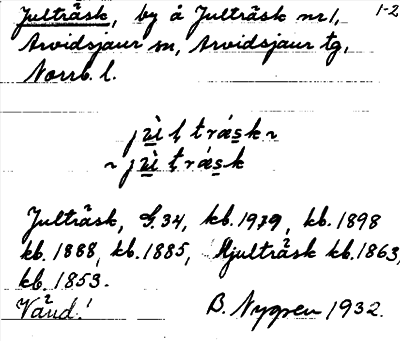 Julträsk, by å Julträsk nr 1, 1-2
Arvidsjaur sn, Arvidsjaur tg,
Norrb. l.
Julträsk, G.34, kb.1979, kb.1898
kb.1888, kb.1885, Hjulträsk kb.1863,
kb.1853.
Vand.
B. Nygren 1932.